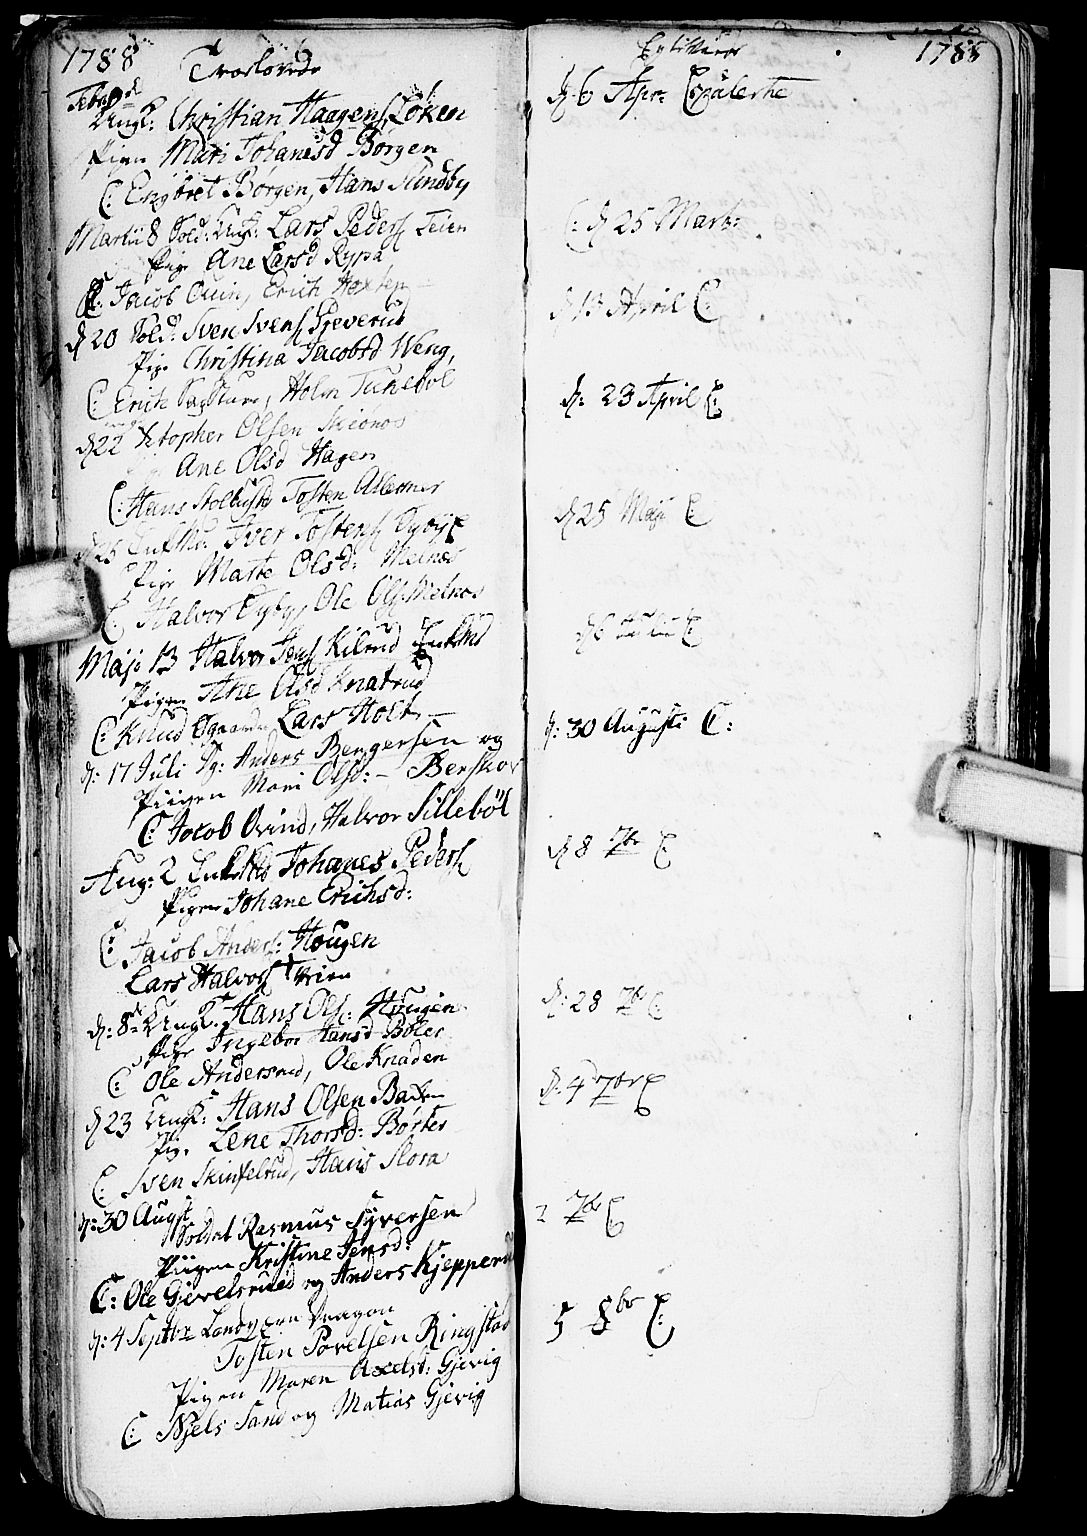 1788 Trolovede
Febr 2d
Ungk: Christian Haagens Løken
Pigen Mari Johanesd Børgen
C: Engbret Børgen, Hans Sundby
Martii 8 Sold: Ungk: Lars Peders Teien
Pige Ane Larsd Rypa
C: Jacob Ouin, Erich Hoxten
d 20 Sold: Sven Svens Gjeverud
Pige Christina Jacobsd Weng,
C: Erich, Holm Tunebøl
d 22 Xstopher Olsen
Ane Olsd Hagen
C: Hans Tosten
d 25 Enkem. Iver Tostens Dybye
Pige Marte Olsd: Melnes
C. Halvor Dyby, Ole Ols: Melnes
Maji 13 Halvor Jens Kilrud Enkem
Pigen Ane Olsd Knatrud
C: Knud Lars Holt
d: 17 Juli Sg: Anders Bengersen og
Piigen Mari Olsd: - Berskov
C: Jacob Ovind, Halvor Sillebøl
Aug: 2 Enkem Johanes Peders
Pigen Johane Erichsd:
C: Jacob Anders: Hougen
Lars Halvors
d: 8de Ungk: Hans Ols: Hougen
Pige Ingebor Hansd Bøler
C: Ole Andersrud, Ole Knaden
d 23 Ungk: Hans Olsen Bakken
Pige Lene Thorsd: Børter
C: Sven Skinfelrud, Hans Slora
d: 30 Augst
Soldat Rasmus Syversen
Piigen Kristine Jensd:
C: Ole Gjevelsruud og Anders Kjepperud
d: 4 Septbr Landværn Dragon
Tosten Povelsen Ringstad
Pigen Maren Axelsd: Gjevig
C: Njels Sand og Matias Gjevig
1788
d 6 Apr: Copulerte
C: d 25 Mart:
d 13 April C:
d: 23 April C:
d 25 Maji C
d 6 Julii C
d: 30 Augusti C:
d 8 7br C
d: 28 7br C:
d: 4 7br C
7br C
5 8br C: